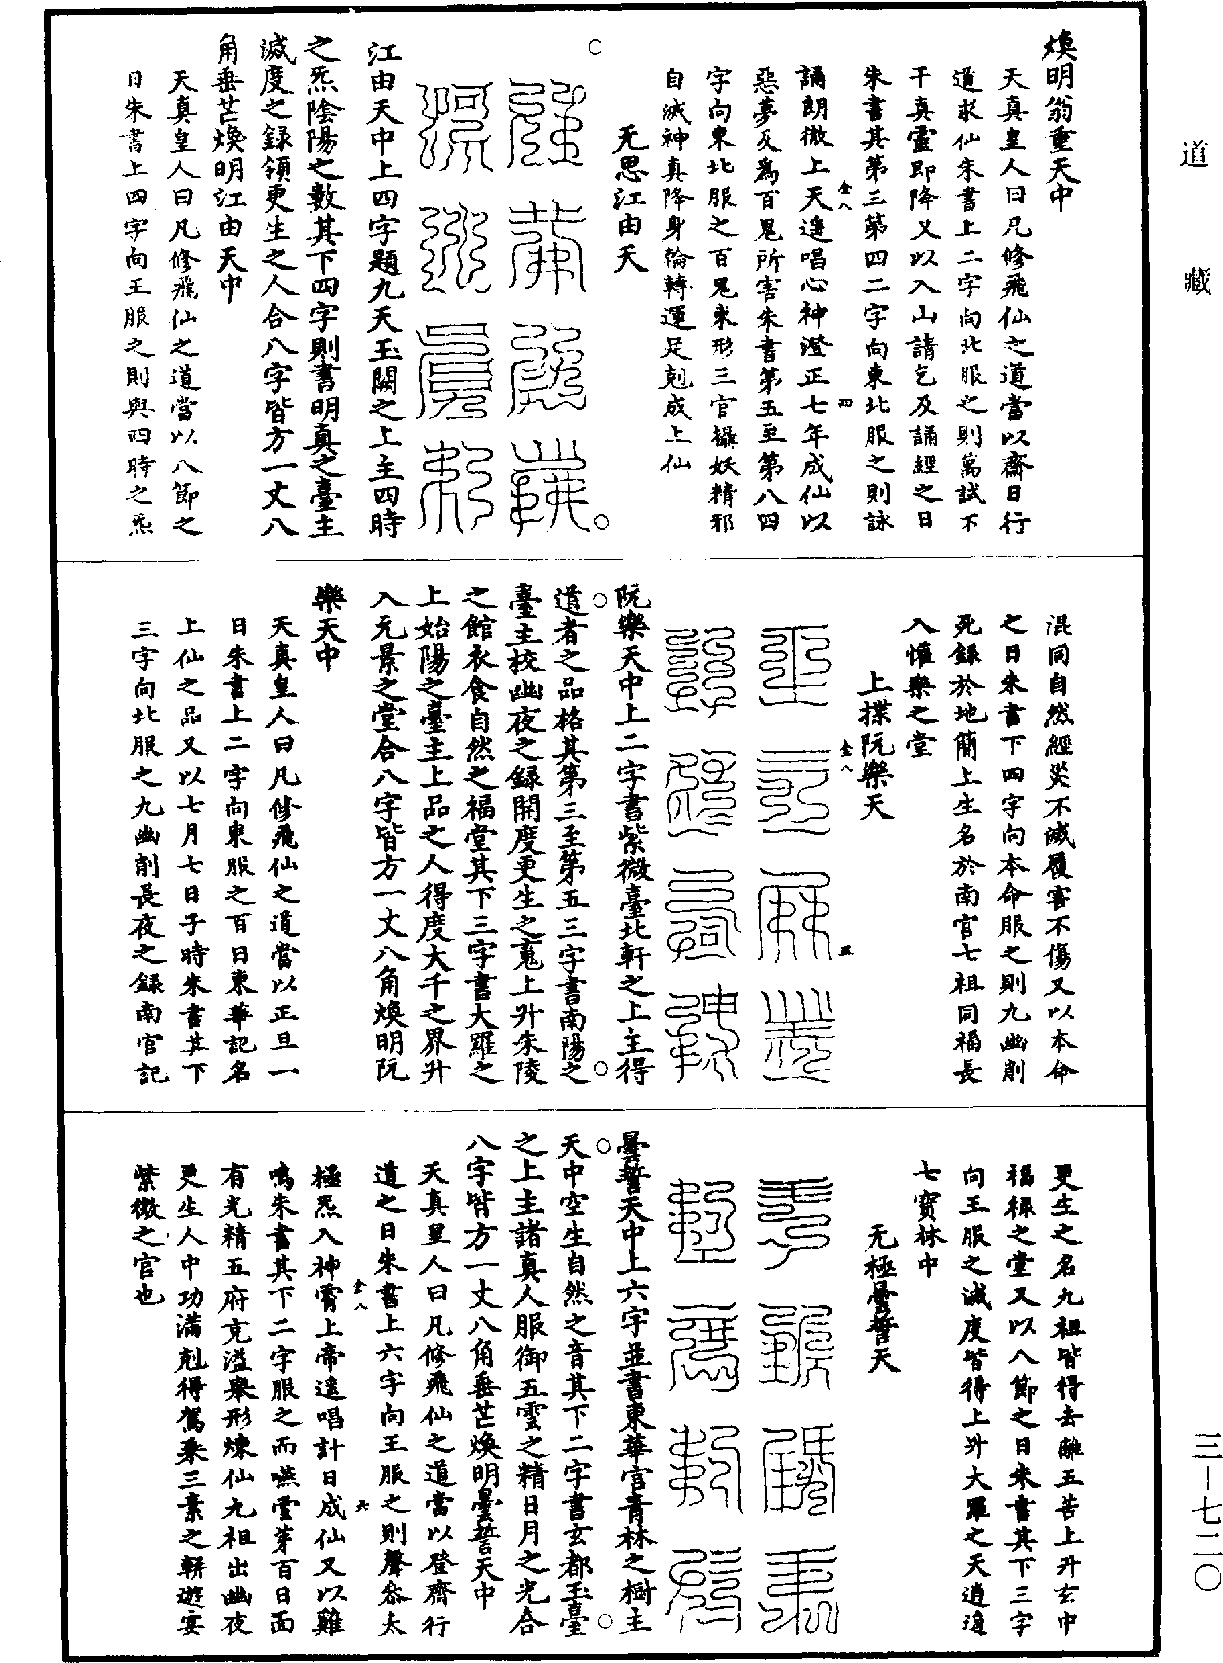 道藏
煥明翁重天中
天真皇人曰凡修飛仙之道當以齋日行
道求仙朱書上二字向北服之則萬試不
干真靈即降又以入山請乞及誦經之日
朱書其第三第四二字向東北服之則詠
誦朗徹上天遥唱心神澄正七年成仙以
惡夢及為百鬼所害朱書第五至第八四
字向東北服之百鬼束形三官攝妖精邪
自滅神真降身輪轉運足剋成上仙
无思江由天
江由天中上四字題九天玉闕之上主四時
之炁陰陽之數其下四字則書明真之臺主
滅度之録領更生之人合八字皆方一丈八
角垂芒煥明江由天中
天真皇人曰凡修飛仙之道當以八節之
日朱書上四字向王服之則與四時之炁
混同自然經災不滅履害不傷又以本命
之日朱書下四字向本命服之則九幽削
死録於地簡上生名於南宫七祖同福長
入懽樂之堂
上揲阮樂天
阮樂天中上二字書紫微臺北軒之上主得
道者之品格其第三至第五三字書南陽之
臺主校幽夜之録開度更生之䰟上升朱陵
之館衣食自然之福堂其下三字書大羅之
上始陽之臺主上品之人得度大千之界升
入元景之堂合八字皆方一丈八角煥明阮
樂天中
天真皇人曰凡修飛仙之道當以正旦一
日朱書上二字向東服之百日東華記名
上仙之品又以七月七日子時朱書其下
三字向北服之九幽削長夜之録南宫記
更生之名九祖皆得去離五苦上升玄中
福禄之堂又以八節之日朱書其下三字
向王服之滅度皆得上升大羅之天逍遥
七寶林中
无極曇誓天
曇誓天中上六字並書東華宫青林之樹主
天中空生自然之音其下二字書玄都玉臺
之上主諸真人服御五雲之精日月之光合
八字皆方一丈八角垂芒煥明曇誓天中
天真皇人曰凡修飛仙之道當以登齋行
道之日朱書上六字向王服之則聲參太
極炁入神霄上帝遥唱計日成仙又以雞
鳴朱書其下二字服之而嚥雲芽百日面
有光精五府充溢舉形煉仙九祖出幽夜
更生人中功滿剋得駕乘三素之軿遊宴
紫微之宫也
三-七二〇